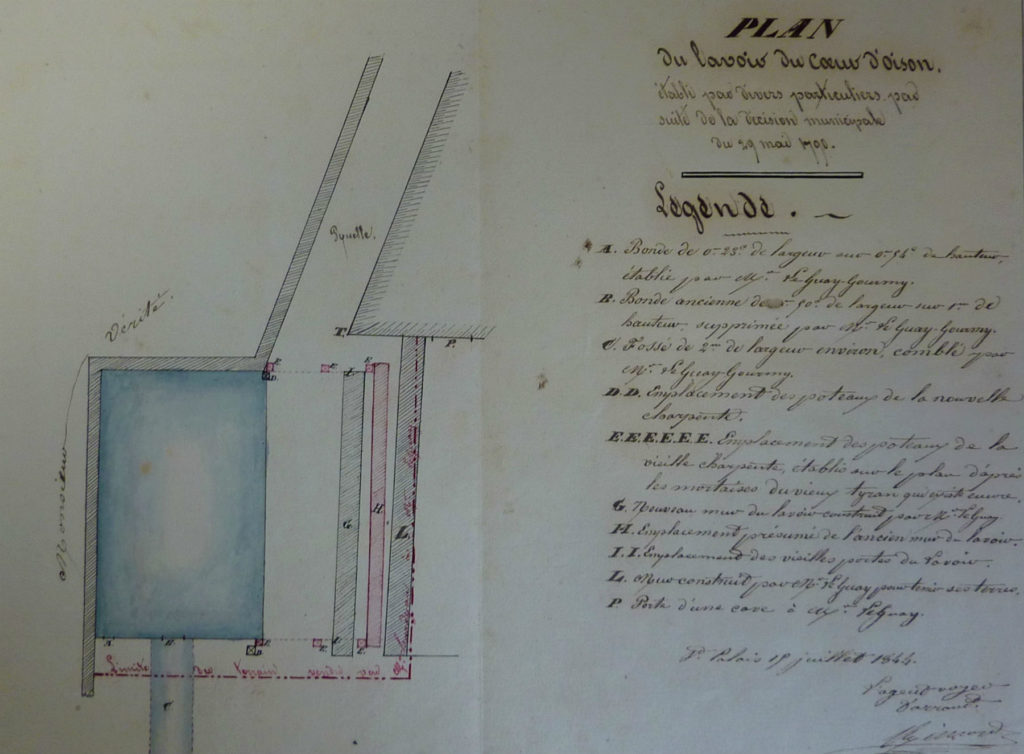 PLAN
du lavoir du Coeur d'oison,
établi par divers particuliers par
suite de la décision municipale
du 29 mai 1790.
Légende.
A. Bonde de 0m 25c de largeur sur 0m 54c de hauteur,
établie par Mr Le Guay-Gourmy.
B. Bonde ancienne de 50c de largeur sur 1m de
hauteur, supprimée par Mr Le Guay-Gourmy.
C. Fossé de 2m de largeur environ, comblé par
Mr Le Guay-Gourmy.
D.D. Emplacement des poteaux de la nouvelle
charpente.
E.E.E.E.E.E. Emplacement des poteaux de la
vieille charpente, établis sur le plan d'après
les mortaises du vieux tyran qui existe encore.
G. Nouveau mur du lavoir construit par Mr Le Guay.
H. Emplacement présumé de l'ancien mur du lavoir.
I.I. Emplacement des vieilles portes du Lavoir.
L. Mur construit par Mr Le Guay pour tenir ses terres.
P. Porte d'une cave à Mr Le Guay.
Palais 15 juillet 1844.
L'agent voyer
Monsieur
Vérité.
Ruelle.
T.
P.
E.
E.
E.
D.
I.
G
H
L
A
B
C
E.
E.
E.
D.
I.
Limite du terrain vendu par